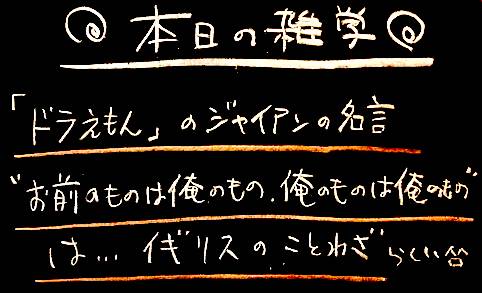 本日の雑学
「ドラえもん」のジャイアンの名言
"お前のものは俺のもの.俺のものは俺のもの"
は... イギリスのことわざらしい